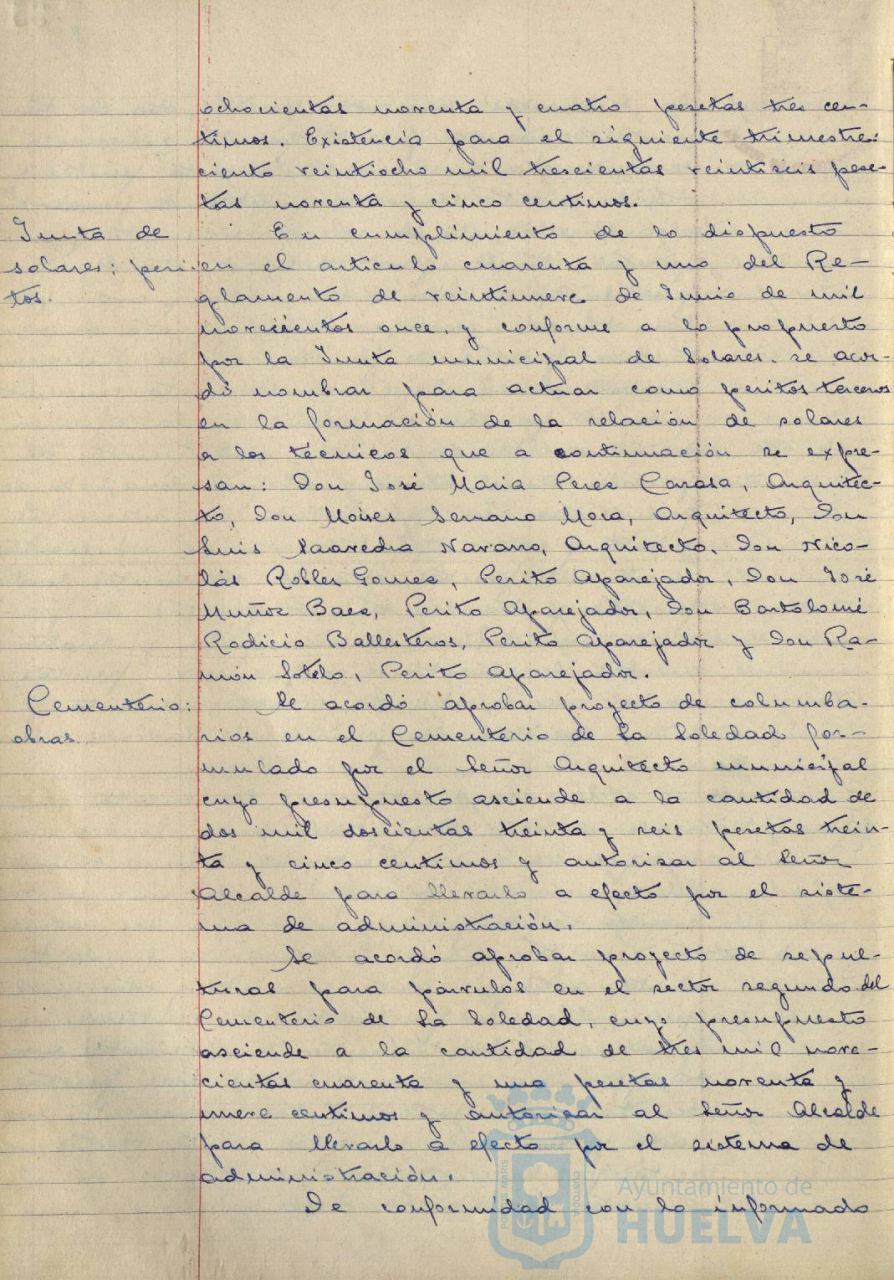 ochocientas noventa y cuatro pesetas tres cen-
timos. Existencia para el siguiente trimestre:
ciento veintiocho mil trescientas veintiseis pese-
tas noventa y cinco centimos.
Junta de
solares; peri-
tos.
En cumplimiento de lo dispuesto
en el articulo cuarenta y uno del Re-
glamento de veintinueve de Junio de mil
novecientos once, y conforme a lo propuesto
por la Junta municipal de Solares. se acor-
dó nombrar para actuar como peritos terceros
en la formación de la relación de solares
a los técnicos que a continuación se expre-
san: Don José Maria Perez Carasa, Arquitec-
to, Don Moises Serrano Mora, Arquitecto, Don
Luis Saavedra Navarro, Arquitecto, Don Nico-
lás Robles Gomez, Perito Aparejador, Don José
Muñoz Baez, Perito Aparejador, Don Bartolomé
Rodicio Ballesteros, Perito Aparejador y Don Ra-
món Sotelo, Perito Aparejador.
Cementerio:
obras.
Se acordó aprobar proyecto de columba-
rios en el Cementerio de La Soledad for-
mulado por el Señor Arquitecto municipal
cuyo presupuesto asciende a la cantidad de
dos mil doscientas treinta y seis pesetas trein-
ta y cinco centimos y autorizar al Señor
Alcalde para llevarlo a efecto por el siste-
ma de administración.
Se acordó aprobar proyecto de sepul-
turas para párvulos en el sector segundo del
Cementerio de La Soledad, cuyo presupuesto
asciende a la cantidad de tres mil nove-
cientas cuarenta y una pesetas noventa y
nueve centimos y autorizar al Señor Alcalde
para llevarlo a efecto por el sistema de
administración.
De conformidad con lo informado
Ayuntamiento de
HUELVA